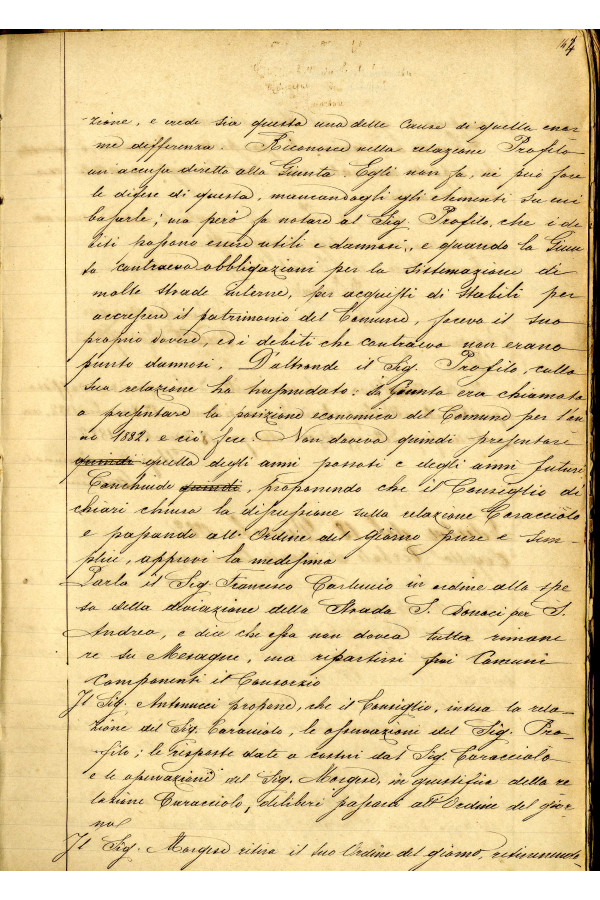 4
zione, e crede sia questa una delle cause di quella enor-
me differenza. Riconosce nella relazione Profilo
un' accusa diretta alla Giunta. Egli non fa, nè può fare
le difese di questa, mancandogli gli elementi su cui
basarle; ma però fa notare al Sig. Profilo, che i de
biti possono essere utili e dannosi, e quando la Giun
ta contraeva obbligazioni per la sistemazione di
molte strade interne, per acquisti di stabili per
accrescere il patrimonio del Comune, faceva il suo
proprio dovere, ed i debiti che contraeva non erano
punto dannosi. D'altronde il Sig. Profilo, colla
sua relazione ha trasmodato: la Giunta era chiamata
a presentare la posizione economica del Comune per l'an
no 1882, e ciò fece. Non doveva quindi presentare
quindi quella degli anni passati e degli anni futuri
Conchiude quindi, proponendo che il Consiglio di
chiari chiusa la discussione sulla relazione Caracciolo
e passando all' Ordine del giorno puro e sem-
plice, approvi la medesima
Parla il Sig. Francesco Carluccio in ordine alla spe
sa della deviazione della Strada S. Donaci per S.
Andrea, e dice che essa non dovea tutta rimane
re su Mesagne, ma ripartirsi fra i Comuni
componenti il Consorzio
Il Sig. Antonucci propone, che il Consiglio, intesa la rela-
zione del Sig. Caracciolo, le osservazioni del Sig. Pro-
filo; le risposte date a costui dal Sig. Caracciolo
e le osservazioni del Sig. Morgese, in giustifica della re
lazione Caracciolo, deliberi passarsi all' Ordine del gior-
no
Il Sig. Morgese ritira il suo Ordine del giorno,